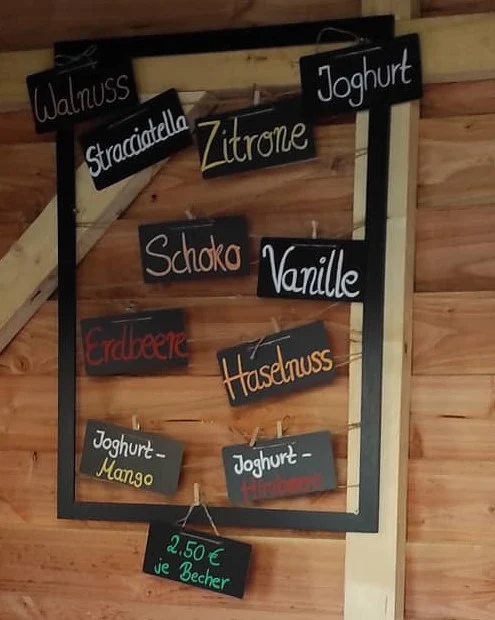 Walnuss
Joghurt
Stracciatella
Zitrone
Schoko
Vanille
Erdbeere
Haselnuss
Joghurt-
Mango
Joghurt-
Himbeere
2.50 €
je Becher